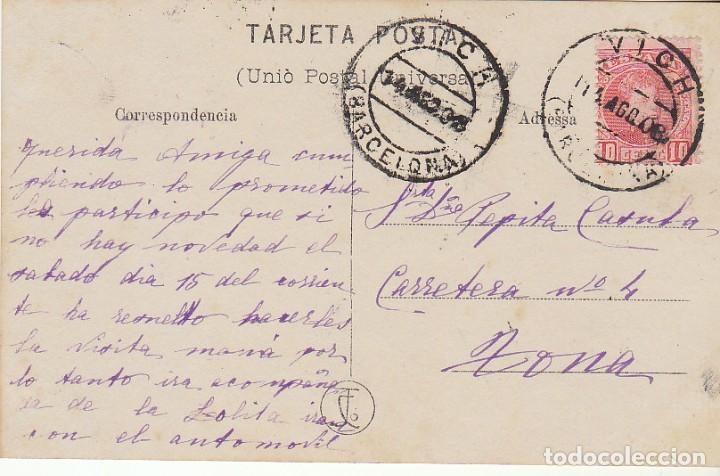 TARJETA POSTAL
(Unió Postal Universal
Correspondencia
Adressa
VICH
14 AGO. 08
(BARCELONA)
VICH
14 AGO. 08
(BARCELONA)
10 10
Querida Amiga cum
pliendo lo prometido
le participo que si
no hay novedad el
sabado dia 15 del corrien-
te ha resuelto hacerles
la visita mamá por
lo tanto ira acompaña
da de la Lolita iran
con el automovil
Srta Dña Pepita
Carretera nº 4
Tona
todocoleccion.net